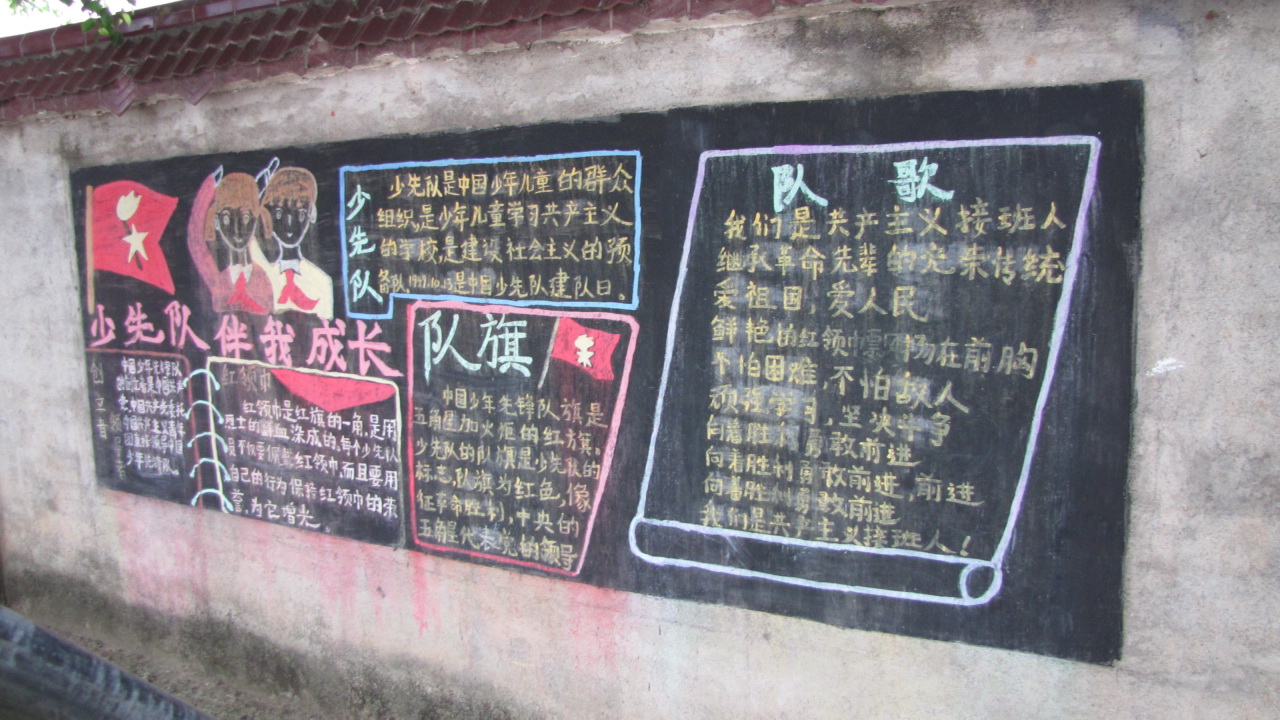 少先队伴我成长
少先队
少先队是中国少年儿童的群众
组织,是少年儿童学习共产主义
的学校,是建设社会主义的预
备队,1949.10.13是中国少先队建队日。
中国少年先锋队
红领巾
红领巾是红旗的一角,是用
烈士的鲜血染成的,每个少先队
员不仅要佩戴红领巾,而且要用
自己的行为保持红领巾的荣
誉,为它增光。
队旗
中国少年先锋队旗是
五角星加火炬的红旗。
少先队的队旗是少先队的
标志,队旗为红色,像
征革命胜利,中央的
五角星代表党的领导
队歌
我们是共产主义接班人
继承革命先辈的光荣传统
爱祖国,爱人民
鲜艳的红领巾飘扬在前胸
不怕困难,不怕敌人
顽强学习,坚决斗争
向着胜利勇敢前进
向着胜利勇敢前进,前进
向着胜利勇敢前进
我们是共产主义接班人!